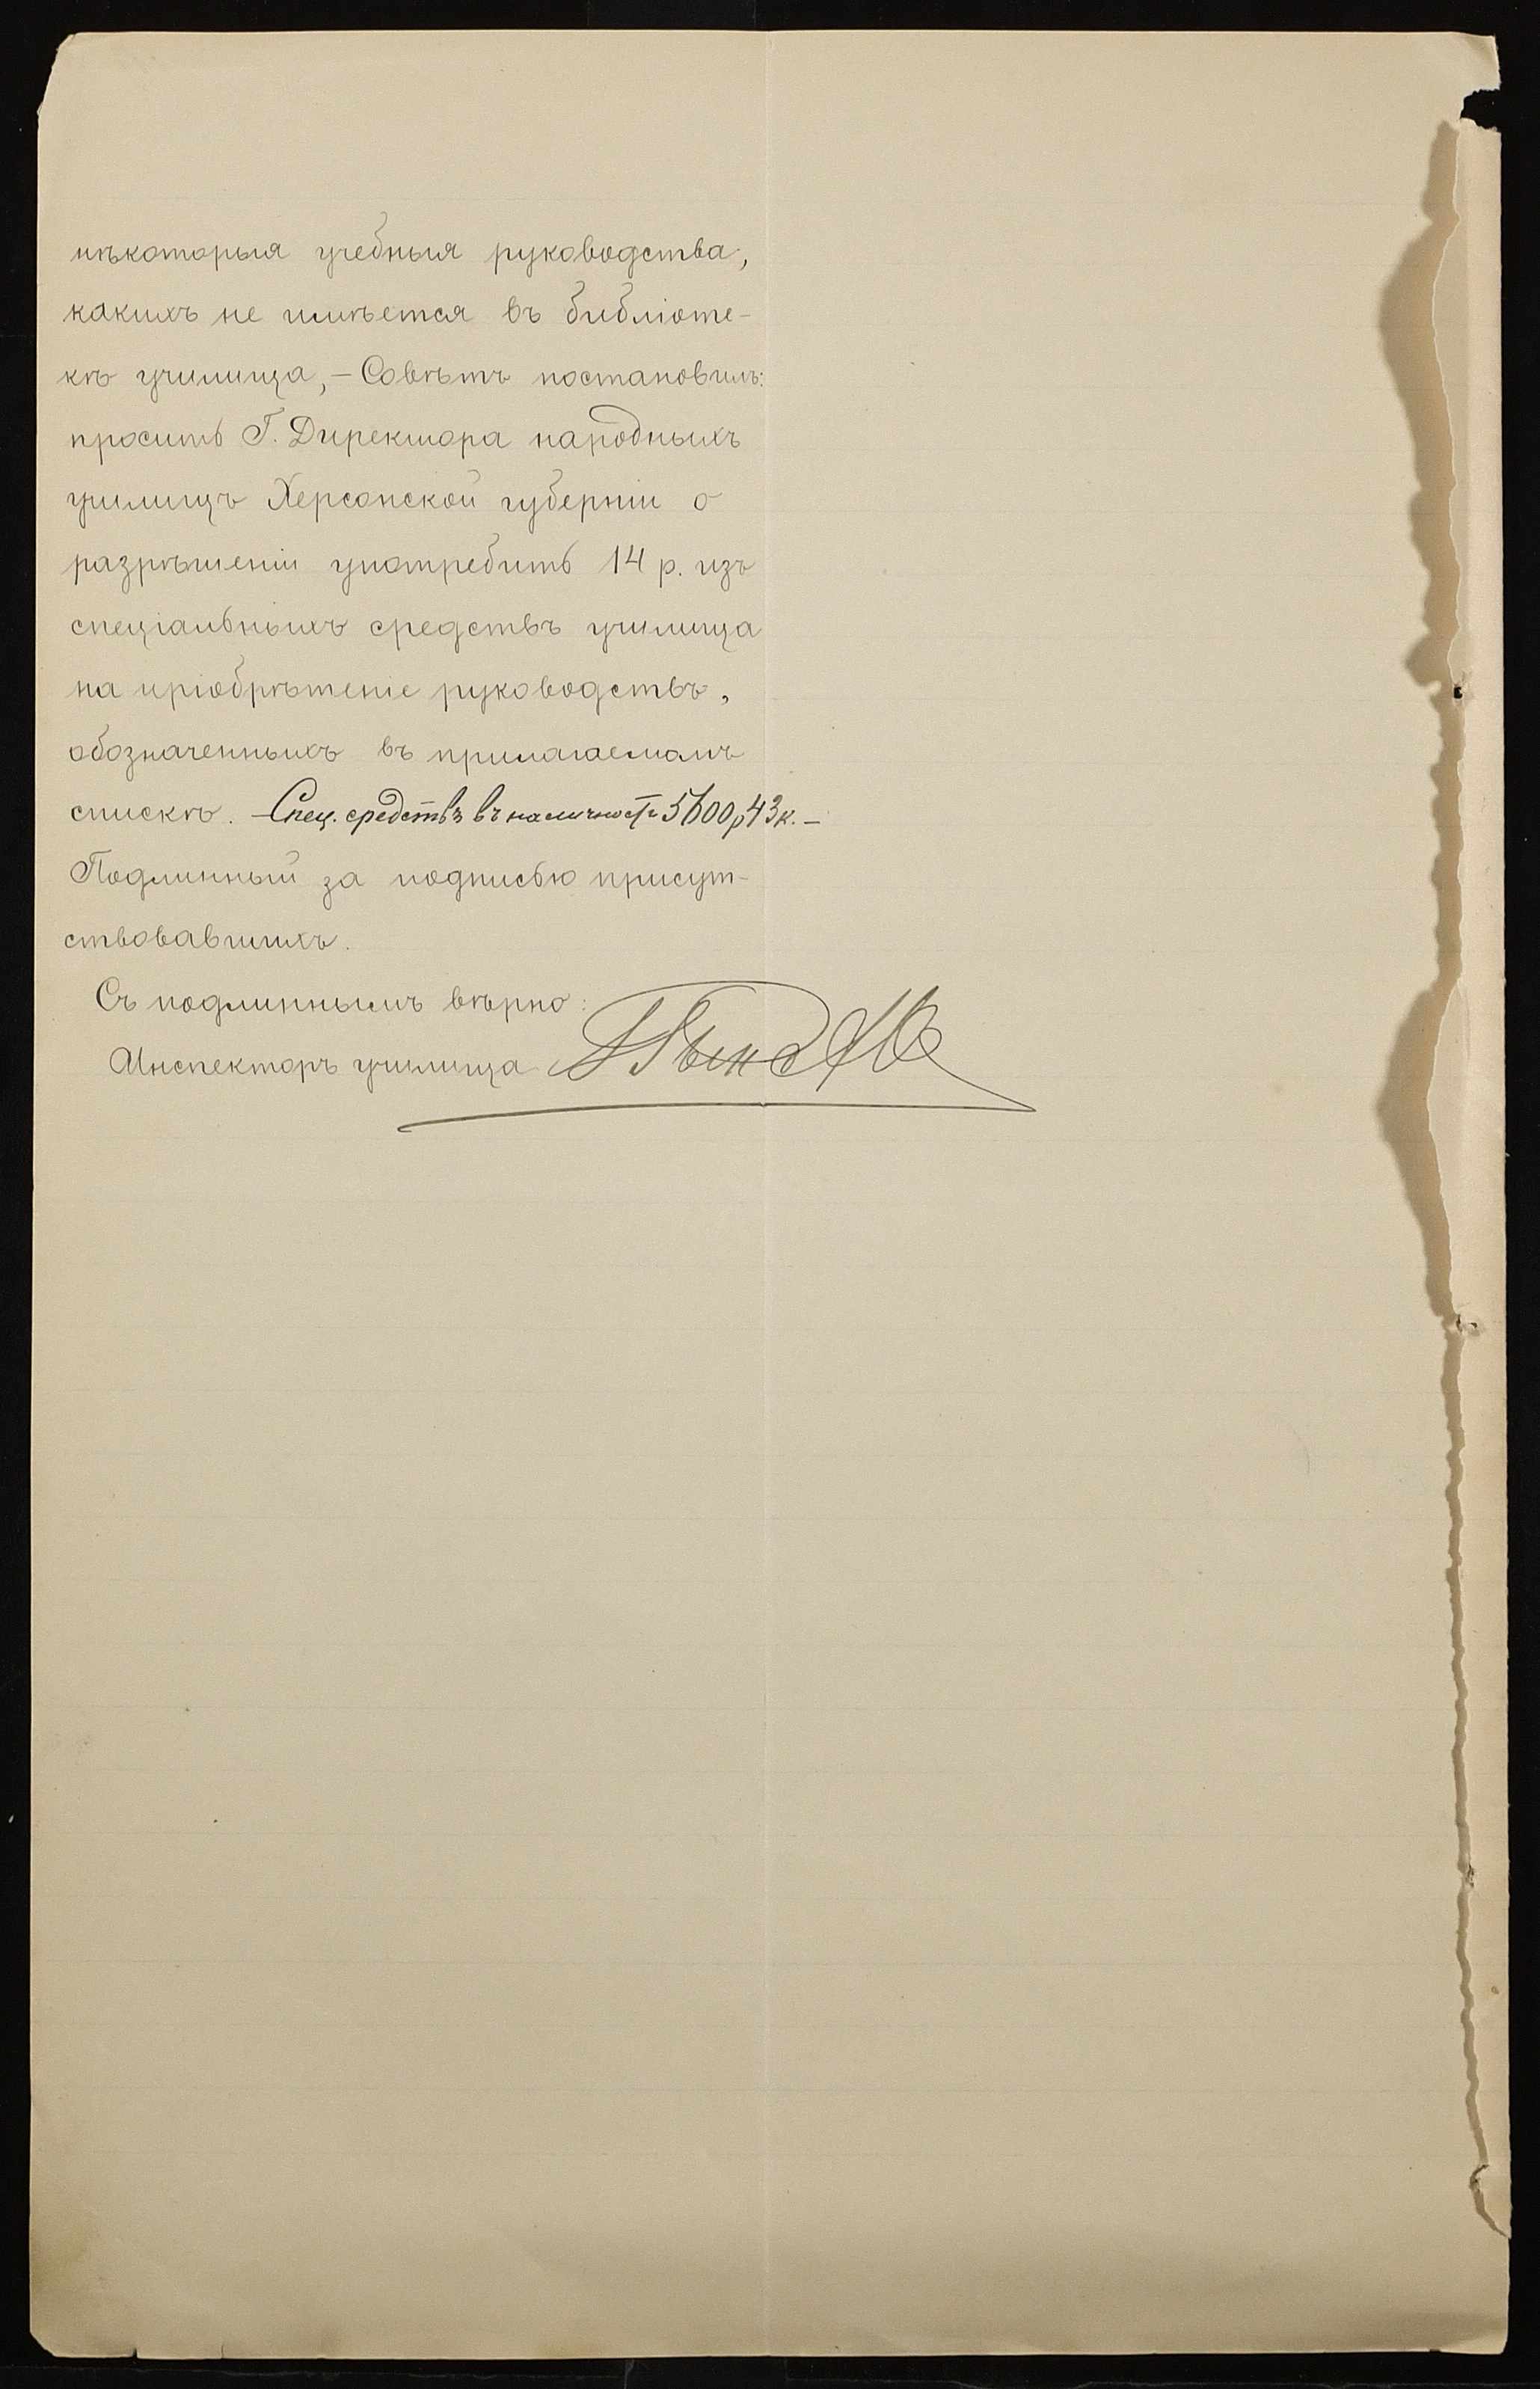 нѣкоторыя учебныя руководства,
какихъ не имѣется въ библіоте-
кѣ училища, – Совѣтъ постановилъ:
просить Г. Директора народныхъ
училищъ Херсонской губерніи о
разрѣшеніи употребить 14 р. изъ
спеціальныхъ средствъ училища
на пріобрѣтеніе руководствъ,
обозначенныхъ въ прилагаемомъ
спискѣ. – Спец. средствъ въ наличности 5600 р 43 к. –
Подлинный за подписью присут-
ствовавшихъ.
Съ подлиннымъ вѣрно:
Инспекторъ училища